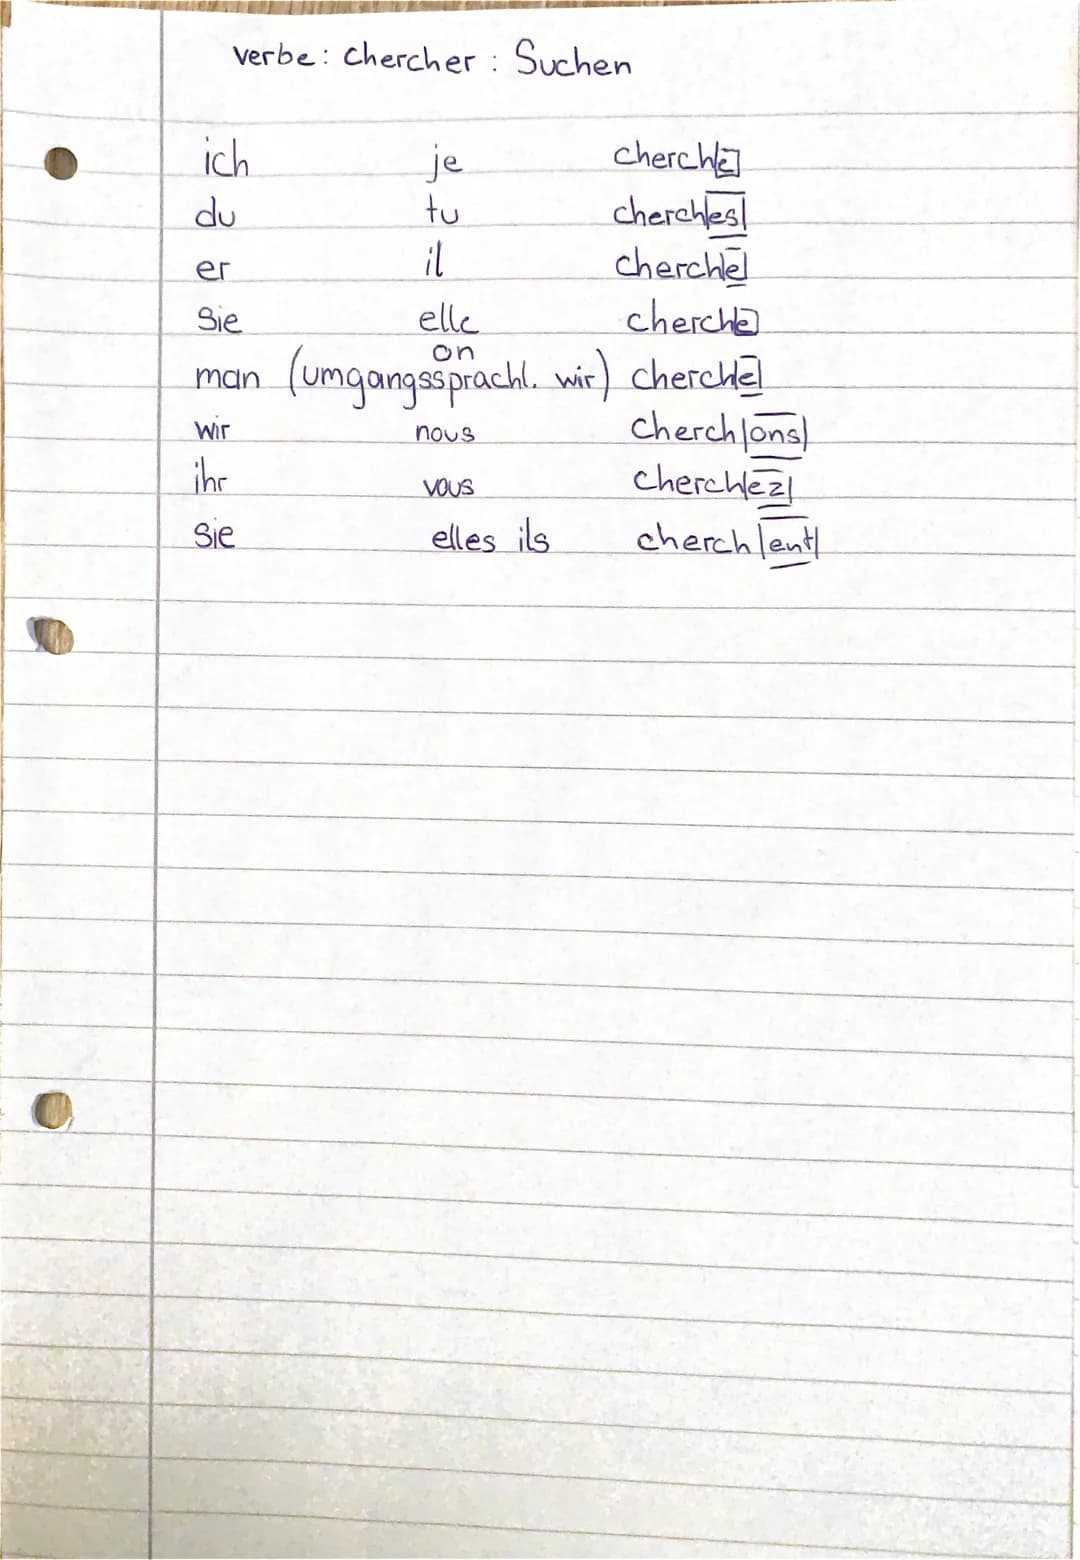 verbe: chercher : Suchen
ich je cherche
du tu cherches
er il cherche
Sie elle cherche
on
man (umgangssprachl. wir) cherche
wir nous cherchons
ihr vous cherchez
Sie elles ils cherchent